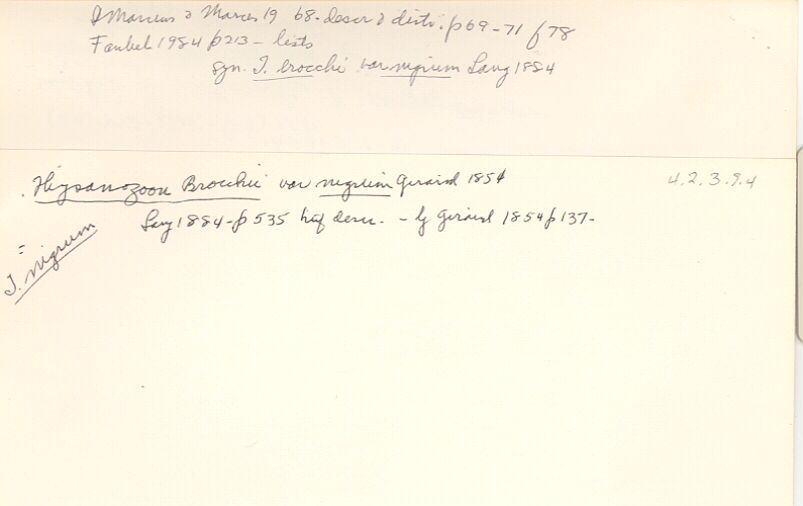 & Marcus & Marcus 19 68. descr & distr. p 69-71 f 78
Faubel 1984 p213 - lists
syn. T. brocchi var nigrum Lang 1884
Thysanozoon Brocchii var nigrum Girard 1854
4.2.3.9.4
Lang 1884-p 535 by Girard 1854 p 137-
= T. nigrum